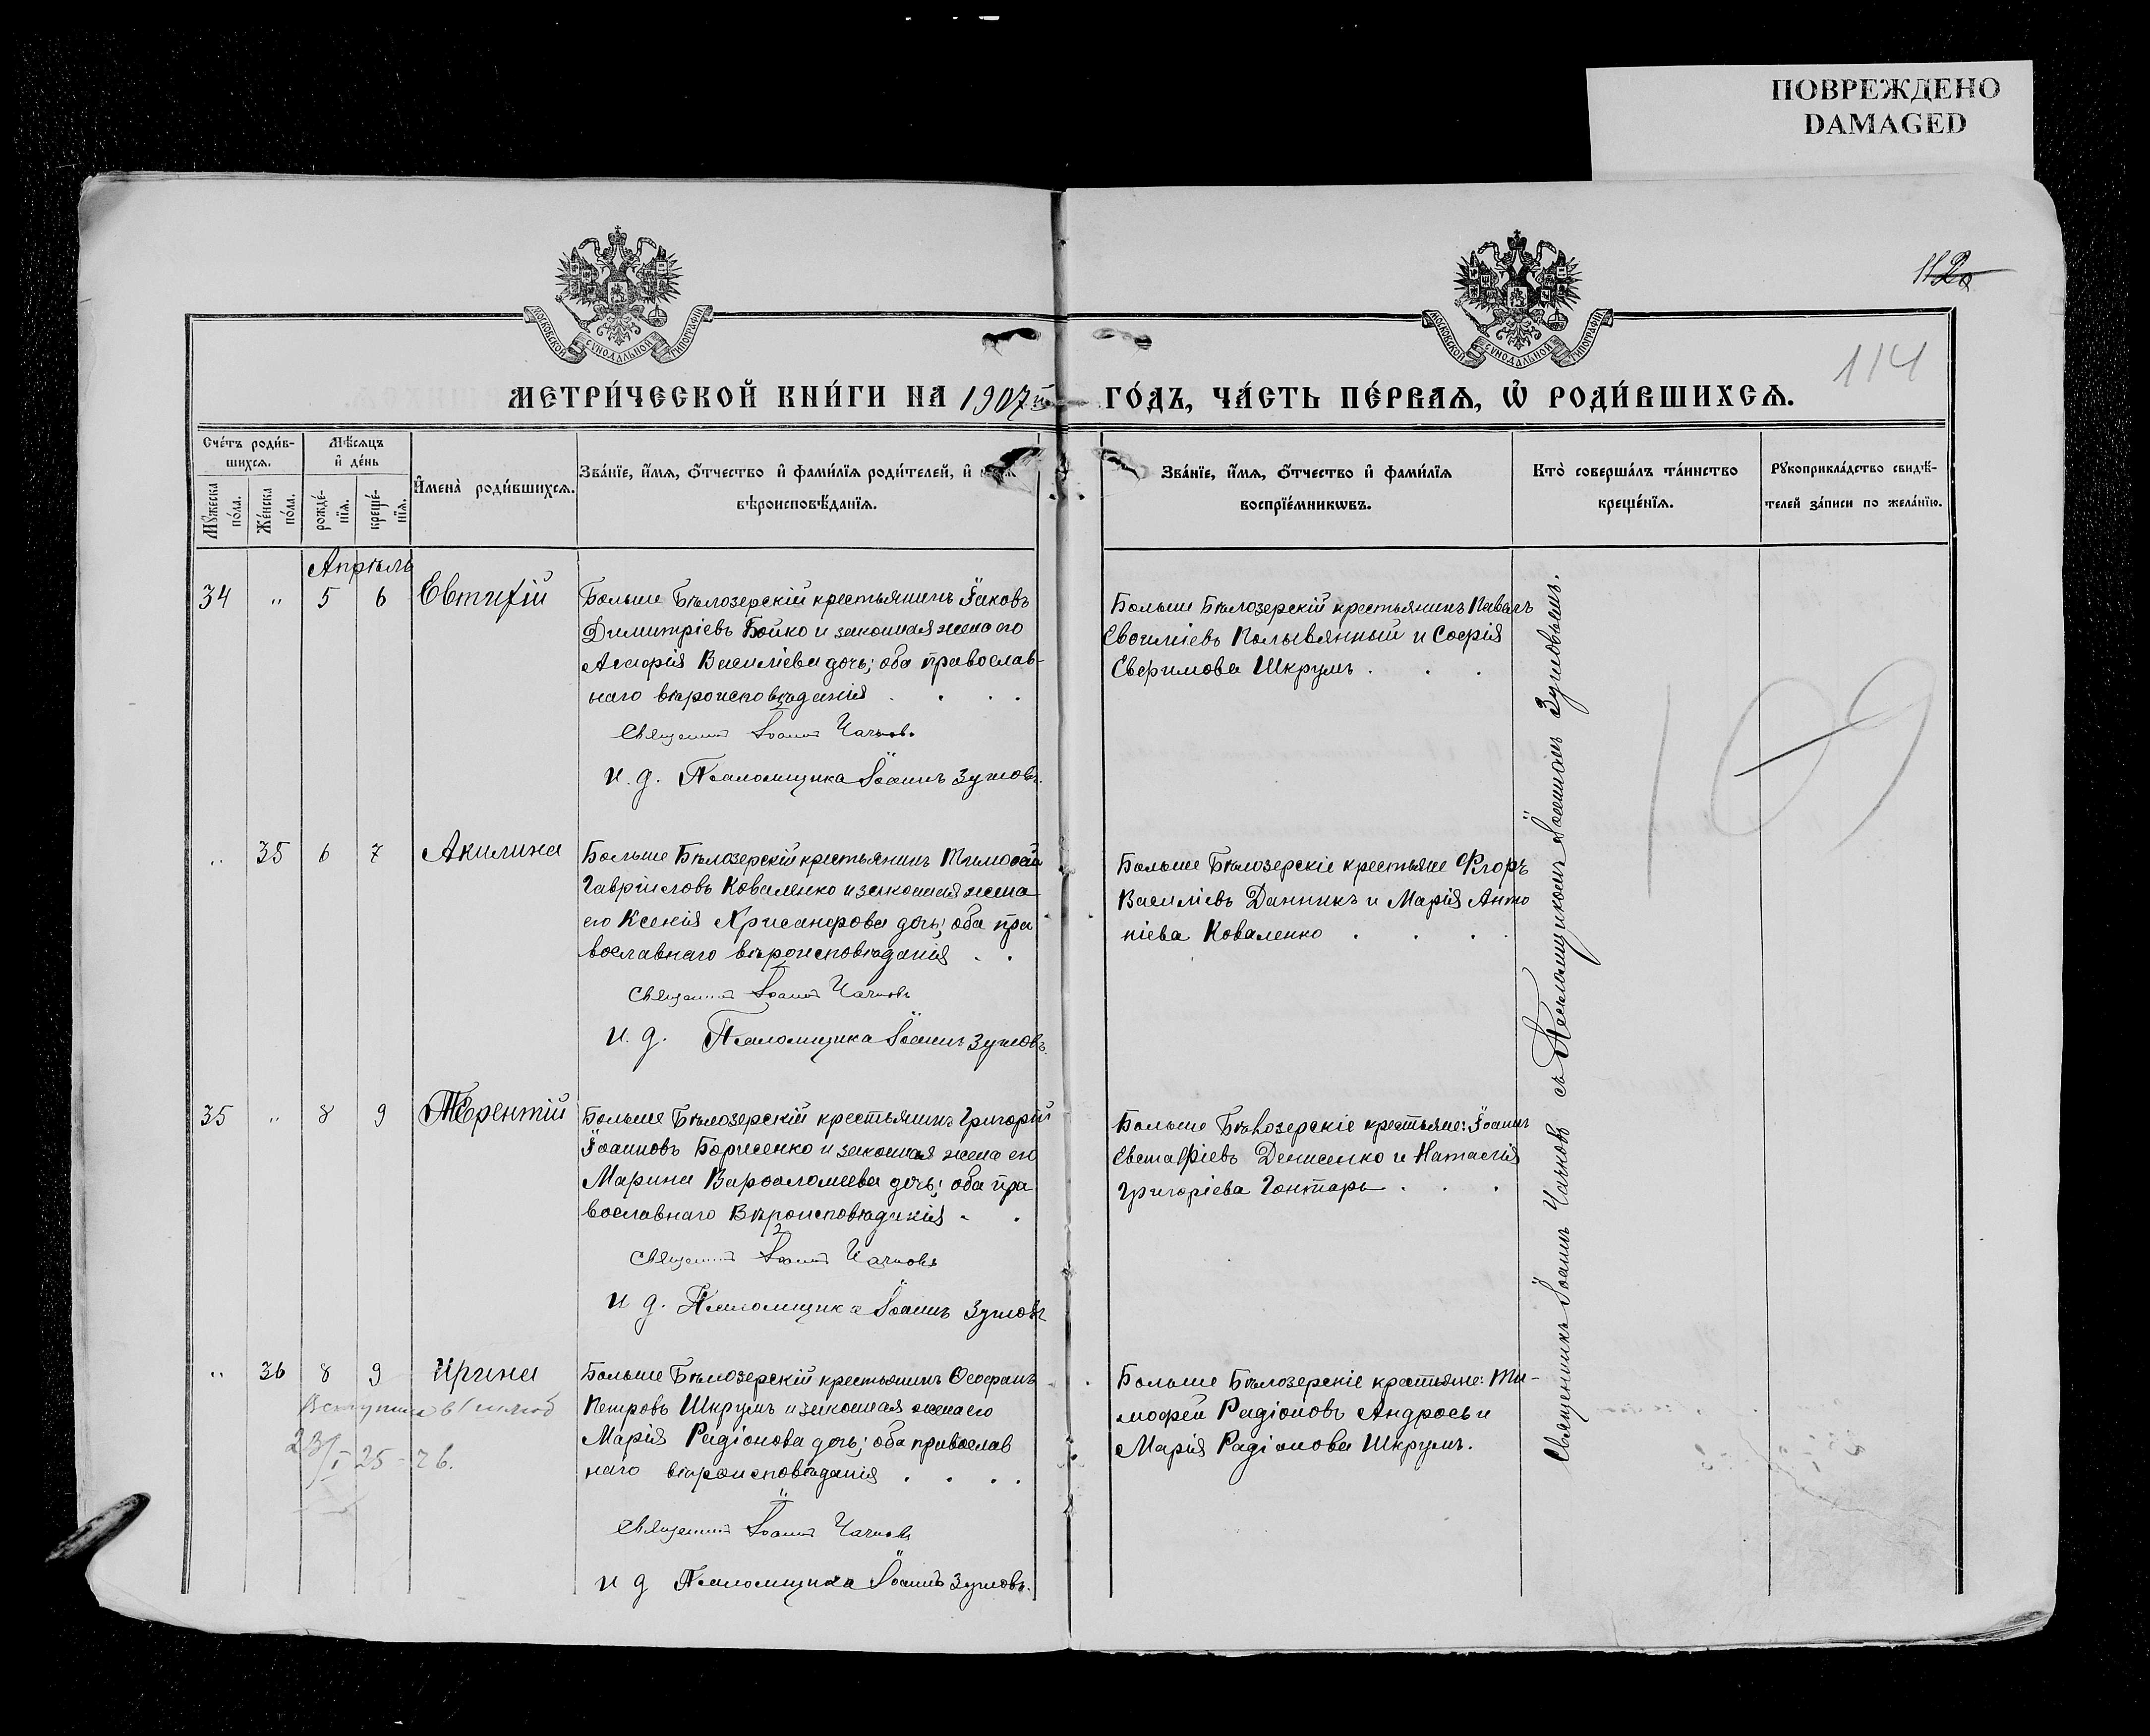 ПОВРЕЖДЕНО
DAMAGED
МОСКОВСКОЙ СУНОДАЛЬНОЙ ТИПОГРАФІИ
МОСКОВСКОЙ СУНОДАЛЬНОЙ ТИПОГРАФІИ
114
МЕТРИ́ЧЕСКОЙ КНИ́ГИ НА 1907й ГО́ДЪ, ЧА́СТЬ ПЕ́РВАѦ, Ѡ҆ РОДИ́ВШИХСѦ.
Сче́тъ роди́в-
шихсѧ.
Мѣ́сѧцъ
и҆ де́нь
Мꙋ́жеска по́ла.
Же́нска по́ла.
рожде́-
нїѧ.
креще́-
нїѧ.
И҆мена̀ роди́вшихсѧ.
Зва́нїе, и҆́мѧ, ѻ҆́тчество и҆ фами́лїѧ роди́телей, и҆
вѣроисповѣ́данїѧ.
Зва́нїе, и҆́мѧ, ѻ҆́тчество и҆ фами́лїѧ
воспрїе́мникѡвъ.
Кто̀ соверша́лъ та́инство
креще́нїѧ.
Рꙋкоприкла́дство свидѣ́-
телей за́писи по жела́нїю.
Апрѣль
34 " 5 6 Евтихій
Больше Бѣлозерскій крестьянинъ Іаковъ
Димитріевъ Бойко и законная жена его
Василіева дочь; оба православ-
наго вѣроисповѣданія . . . .
Священникъ Іоаннъ Чачковъ
и. д. Псаломщика Іоаннъ Зуиовъ.
Больше Бѣлозерскій крестьянинъ Павелъ
и Софія
Евфимова Шкрумъ . . .
" 35 6 7 Акилина
Больше Бѣлозерскій крестьянинъ Тимоѳей
Гавріиловъ Коваленко и законная жена
его Ксенія Хрисанфова дочь; оба пра
вославнаго вѣроисповѣданія . .
Священникъ Іоаннъ Чачковъ
и. д. Псаломщика Іоаннъ Зуиовъ.
Больше Бѣлозерскіе крестьяне Флоръ
Василіевъ Данникъ и Марія Анто
ніева Коваленко . . . .
35 " 8 9 Терентій
Больше Бѣлозерскій крестьянинъ Григорій
Іоанновъ Борисенко и законная жена его
Марина Варѳоломеева дочь; оба пра
вославнаго Вѣроисповѣданія - .
Священникъ Іоаннъ Чачковъ
и д. Псаломщика Іоаннъ Зуиовъ
Больше Бѣлозерскіе крестьяне: Іоаннъ
Евстафіевъ Денисенко и Наталія
Григоріева Гонтарь . . .
" 36 8 9 Ирина
Больше Бѣлозерскій крестьянинъ Ѳеофанъ
Петровъ Шкрумъ и законная жена его
Марія Радіонова дочь; оба православ
наго вѣроисповѣданія . . . .
Священникъ Іоаннъ Чачковъ
и д Псаломщика Іоаннъ Зуиовъ.
Больше Бѣлозерскіе крестьяне: Ти-
мофей Радіоновъ Андросъ и
Марія Радіонова Шкрумъ.
Священникъ Іоаннъ Чачковъ съ Псаломщикомъ Іоанномъ Зуиовымъ.
109